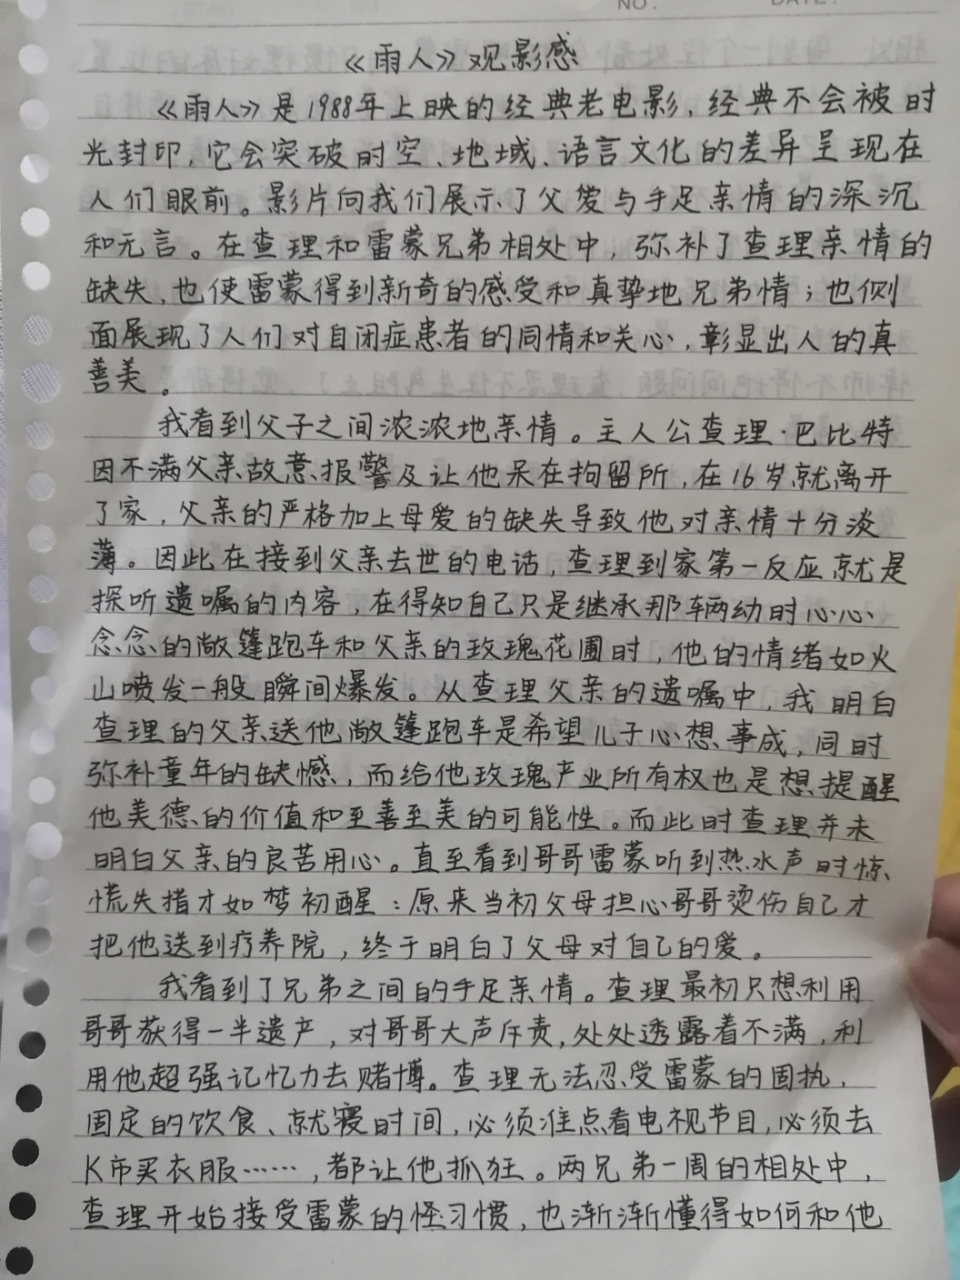 NO.
DATE.
《雨人》观影感
《雨人》是1988年上映的经典老电影，经典不会被时
光封印，它会突破时空、地域、语言文化的差异呈现在
人们眼前。影片向我们展示了父爱与手足亲情的深沉
和无言。在查理和雷蒙兄弟相处中，弥补了查理亲情的
缺失，也使雷蒙得到新奇的感受和真挚地兄弟情；也侧
面展现了人们对自闭症患者的同情和关心，彰显出人的真
善美。
我看到父子之间浓浓地亲情。主人公查理·巴比特
因不满父亲故意报警及让他呆在拘留所，在16岁就离开
了家，父亲的严格加上母爱的缺失导致他对亲情十分淡
薄。因此在接到父亲去世的电话，查理到家第一反应就是
探听遗嘱的内容，在得知自己只是继承那辆幼时心心
念念的敞篷跑车和父亲的玫瑰花圃时，他的情绪如火
山喷发一般瞬间爆发。从查理父亲的遗嘱中，我明白
查理的父亲送他敞篷跑车是希望儿子心想事成，同时
弥补童年的缺憾，而给他玫瑰产业所有权也是想提醒
他美德的价值和至善至美的可能性。而此时查理并未
明白父亲的良苦用心。直至看到哥哥雷蒙听到热水声时惊
慌失措才如梦初醒：原来当初父母担心哥哥烫伤自己才
把他送到疗养院，终于明白了父母对自己的爱。
我看到了兄弟之间的手足亲情。查理最初只想利用
哥哥获得一半遗产，对哥哥大声斥责，处处透露着不满，利
用他超强记忆力去赌博。查理无法忍受雷蒙的固执，
固定的饮食、就寝时间，必须准点看电视节目，必须去
K市买衣服……，都让他抓狂。两兄弟一周的相处中，
查理开始接受雷蒙的怪习惯，也渐渐懂得如何和他